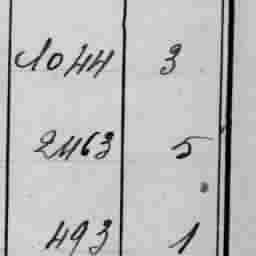 1044 3
2463 5
493 1